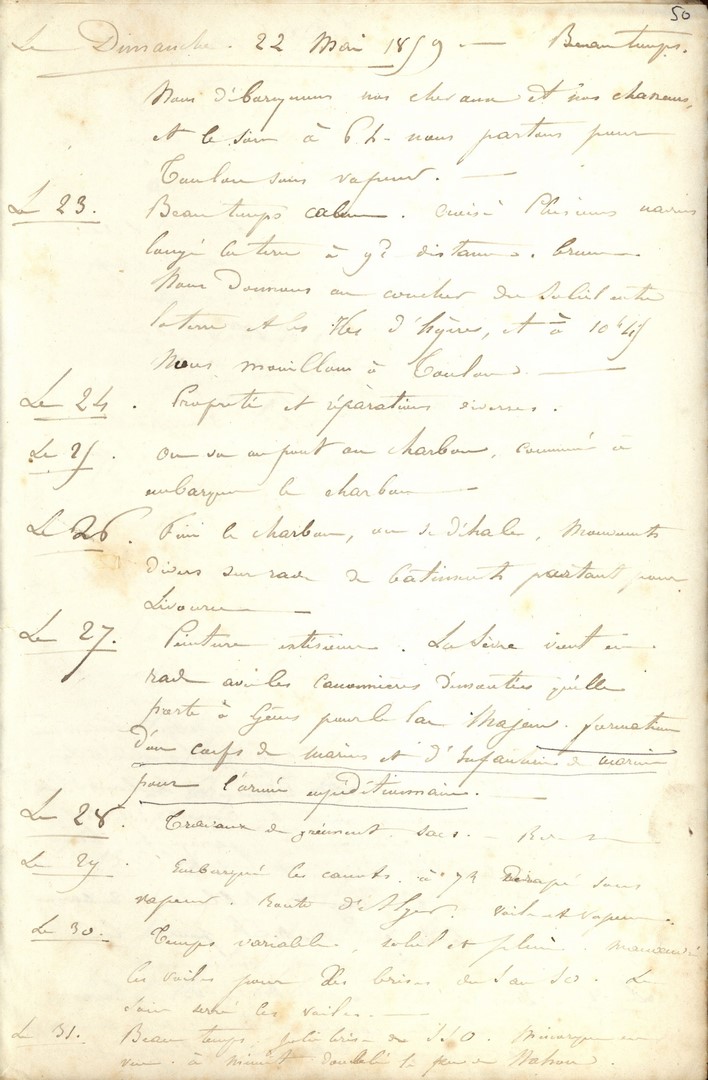 50
Le Dimanche. 22 Mai 1859. — Beau temps.
Nous débarquons nos chevaux et nos chasseurs,
et le soir à 6 h. nous partons pour
Toulon sous vapeur. —
Le 23. Beau temps calme. Croisé plusieurs navires
longé la terre à gde distance. brume.
Nous Donnons au coucher du soleil entre
la terre et les Iles d'hyères, et à 10h 45
Nous mouillons à Toulon. —
Le 24. Propreté et réparations diverses.
Le 25. On va au pont au charbon, commencé à
embarquer le charbon —
Le 26. Fini le charbon, on se déhale, Mouvements
divers sur rade de bâtiments partant pour
Livourne —
Le 27. Peinture extérieure. La Sèvre vient en
rade avec les canonnières démontées qu'elle
porte à Gênes pour le lac Majeur. formation
d'un corps de marins et d'Infanterie de marine
pour l'armée expéditionnaire. —
Le 28. Travaux de gréement. sacs. —
Le 29. Embarqué les canots. à 7h Dérapé sous
vapeur. Route d'Alger. voile et vapeur.
Le 30. Temps variable, soleil et pluie. manœuvré
les voiles pour des brises du S au SO. Le
soir serré les voiles. —
Le 31. Beau temps, jolie brise de SSO. Minorque en
vue. à minuit doublé le feu de Mahon.